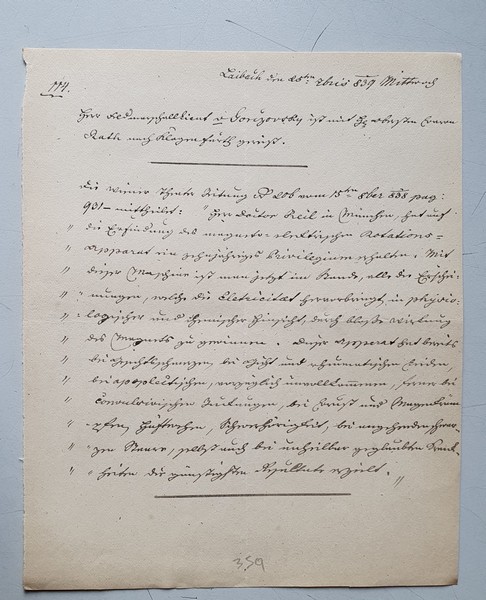 114.
Laibach den 25ten 7bris 839 Mittwoch
Herr Feldmarschallieut v Gorizovsky ist mit H Obersten Baron
Rath nach Klagenfurth gereist.
Die Wiener Theater Zeitung № 206 vom 15ten 8ber 838 pag:
931 – mittheilet: "Herr Doctor Keil in München, hat auf
" die Erfindung des magneto-elektrischen Rotations=
" Apparat ein zehnjähriges Privilegium erhalten. Mit
" dieser Maschine ist man jetzt im Stande, alle die Erschei=
" nungen, welche die Eletricität hervorbringt, in physio=
" logischer und chemischer Hinsicht, durch bloße Wirkung
" des Magnets zu gewinnen. Dieser Apparat hat bereits
" bei Gesichtsschmerzen, bei Gicht und rheumatischen Leiden,
" bei apoplectischen, vorzüglich unvollkommenen, ferner bei
" convulsivischen Zuckungen, bei Brust und Magenkräm
" pfen, Hüftwehen, Schwerhörigkeit, bei angehenden schwar=
" zen Staare, selbst auch bei unheilbar geglaubten Krank
" heiten die günstigsten Resultate erzielt. "
359